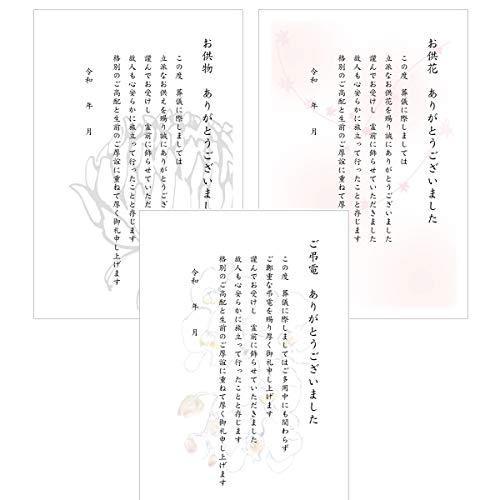 お供物　ありがとうございま
この度　葬儀に際しましては
立派なお供えを賜り誠にありがとうござ
謹んでお受けし　霊前に飾らせていただ
故人も心安らかに旅立って行ったことと存じます
格別のご高配と生前のご厚誼に重ねて厚く御礼申し上げます
令和　年　月
お供花　ありがとうございました
この度　葬儀に際しましては
立派なお供花を賜り誠にありがとうございました
謹んでお受けし　霊前に飾らせていただきました
故人も心安らかに旅立って行ったことと存じます
格別のご高配と生前のご厚誼に重ねて厚く御礼申し上げます
令和　年　月
ご弔電　ありがとうございました
この度　葬儀に際しましてはご多用中にも関わらず
ご鄭重な弔電を賜り厚く御礼申し上げます
謹んでお受けし　霊前に飾らせていただきました
故人も心安らかに旅立って行ったことと存じます
格別のご高配と生前のご厚誼に重ねて厚く御礼申し上げます
令和　年　月